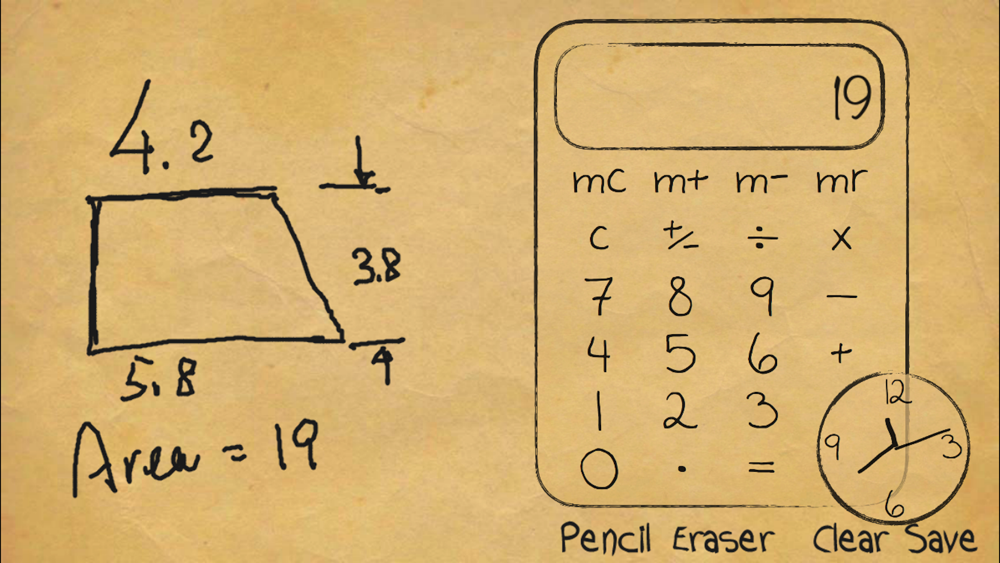 4.2
3.8
5.8
Area = 19
19
mc m+ m- mr
c +/- ÷ x
7 8 9 –
4 5 6 +
1 2 3
0 . =
12
9 3
6
Pencil Eraser Clear Save